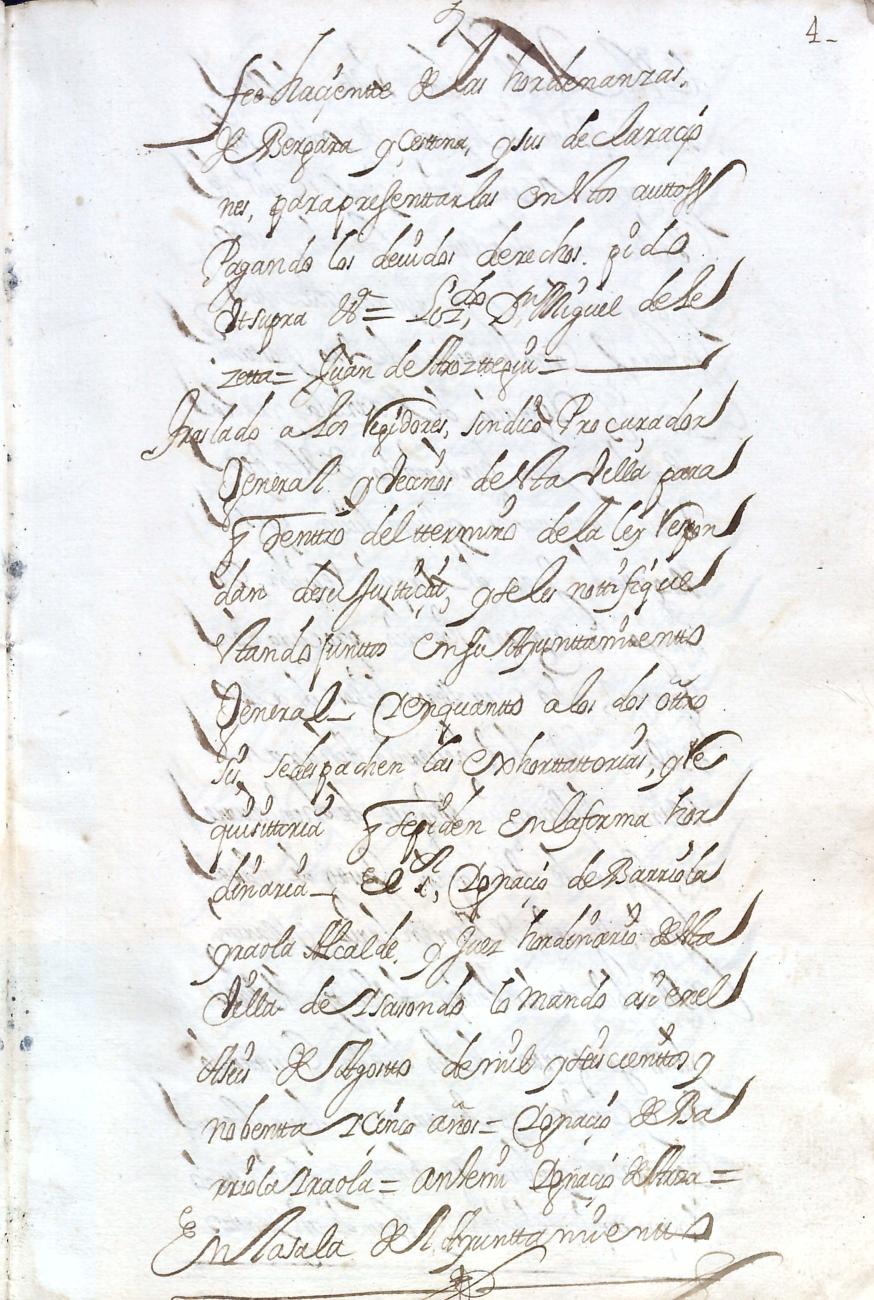 4
fee haçiente de las hordenanzas
de Bergara y Cestona, y sus declaracio
nes, para presenttarlas en Vtos auttos
Pagando los deuidos derechos. pido
Vt supra &ª = Lizdo, Dn Miguel de Le
zetta = Juan de Aroztegui =
Traslado a los Regidores, sindico Procurador
General y Veçinos de Vta Villa para
q denttro del ttermino de la ley Respon
dan de su Justiçia, y se les nottifique
Vtando junttos en su Ayunttamientto
General_ Y en quantto a los dos ottro
sis, se despachen las exhorttattorias, y Re
quisittoria q se piden en la forma hor
dinaria_ El Sr, Ygnaçio de Barriola
yraola Alcalde, y Juez hordinario de Vta
Villa de Ysasondo lo mando asi en el
A seis de Agostto de mill y seiscienttos y
nobentta Y Cinco años = Ygnaçio de Ba
rriola Yraola = Antemi Ygnaçio de =
En la sala del Ayunttamientto